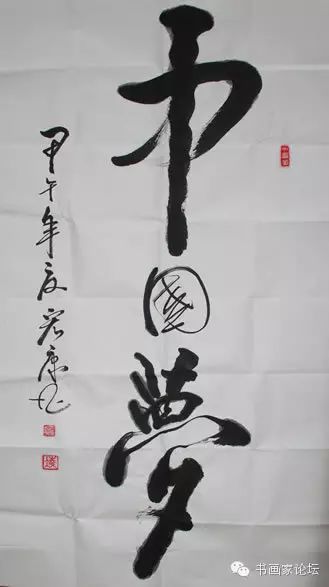 中國夢
甲午年夏宏康书
书画家论坛